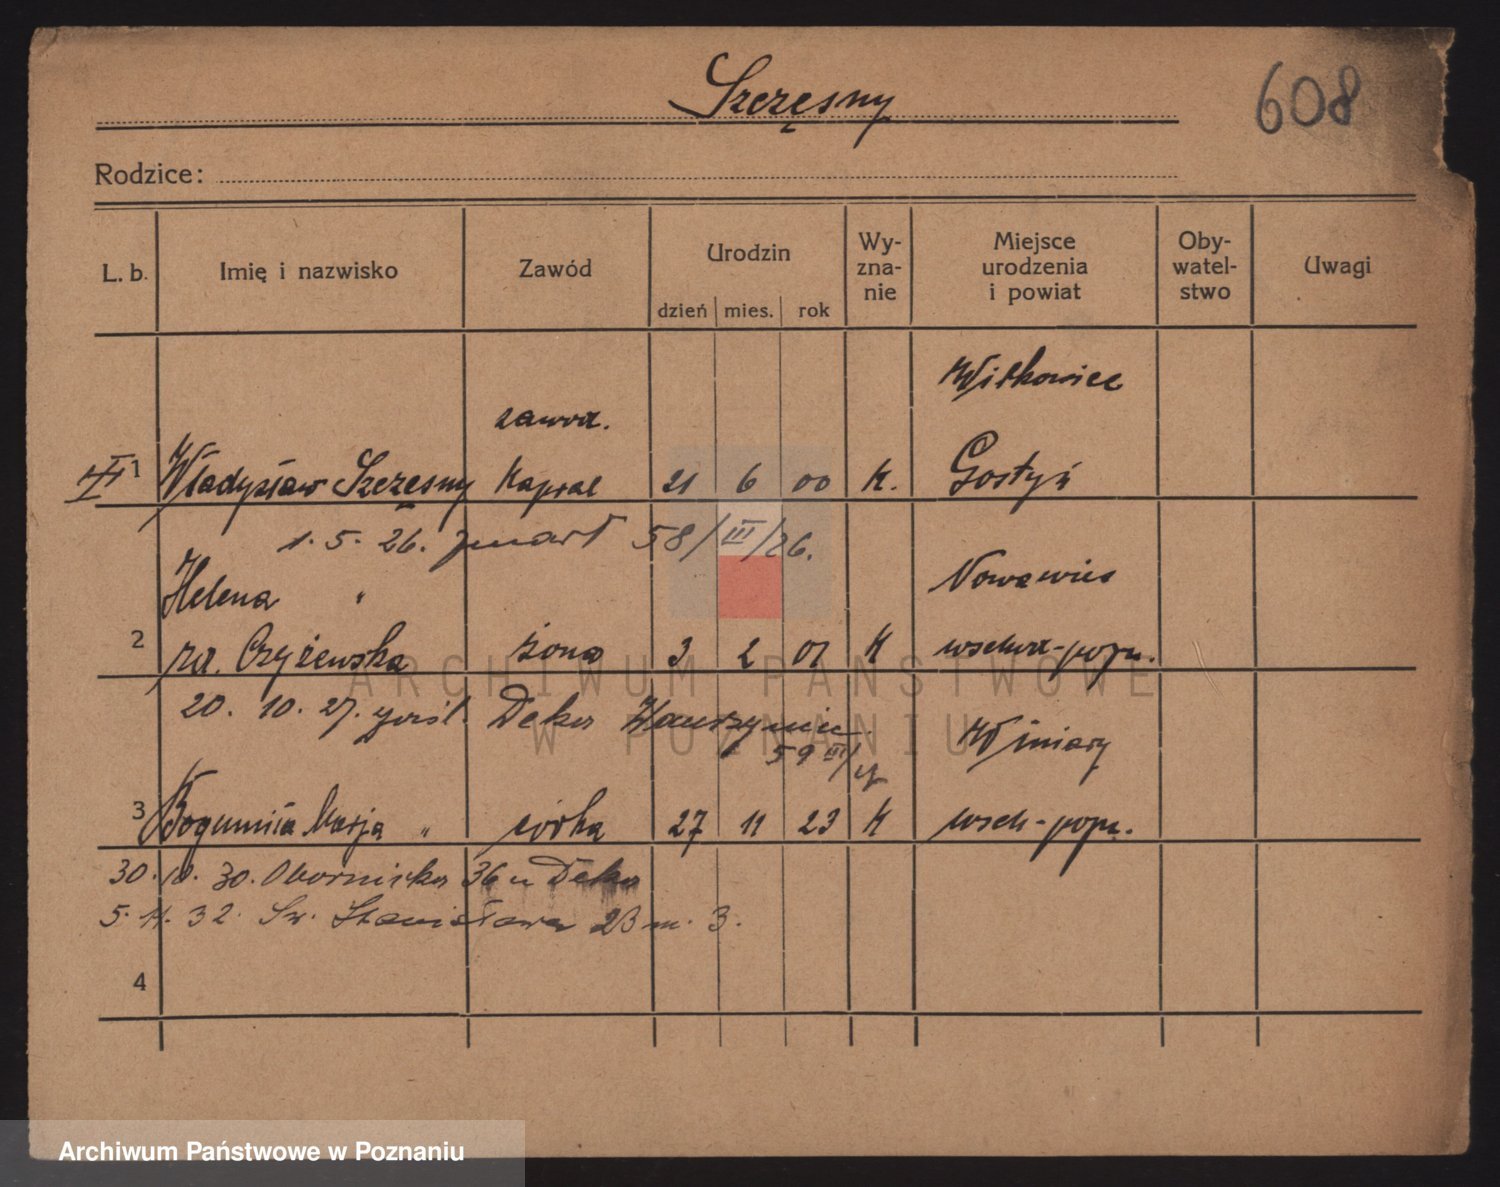 Szczęsny
608
Rodzice:
L. b. Imię i nazwisko Zawód Urodzin dzień mies. rok Wy-zna-nie Miejsce urodzenia i powiat Oby-watel-stwo Uwagi
Witkowice
zawod.
1 Władysław Szczęsny Kapral 21 6 00 K. Gostyń
1. 5. 26. zmarł 58/III/26.
Helena " Nowawieś
2 zd. Czyżewska żona 3 2 01 K wschod-pozn.
20. 10. 27. Deka Wawrzyniec
59 III/
Winiary
3 Bogumiła Marja " córka 27 11 23 K wsch-pozn.
30. 10. 30. Obornicka 36 u Deka
5. 11. 32. Św. Stanisława 23 m. 3.
4
ARCHIWUM PAŃSTWOWE
W POZNANIU
Archiwum Państwowe w Poznaniu